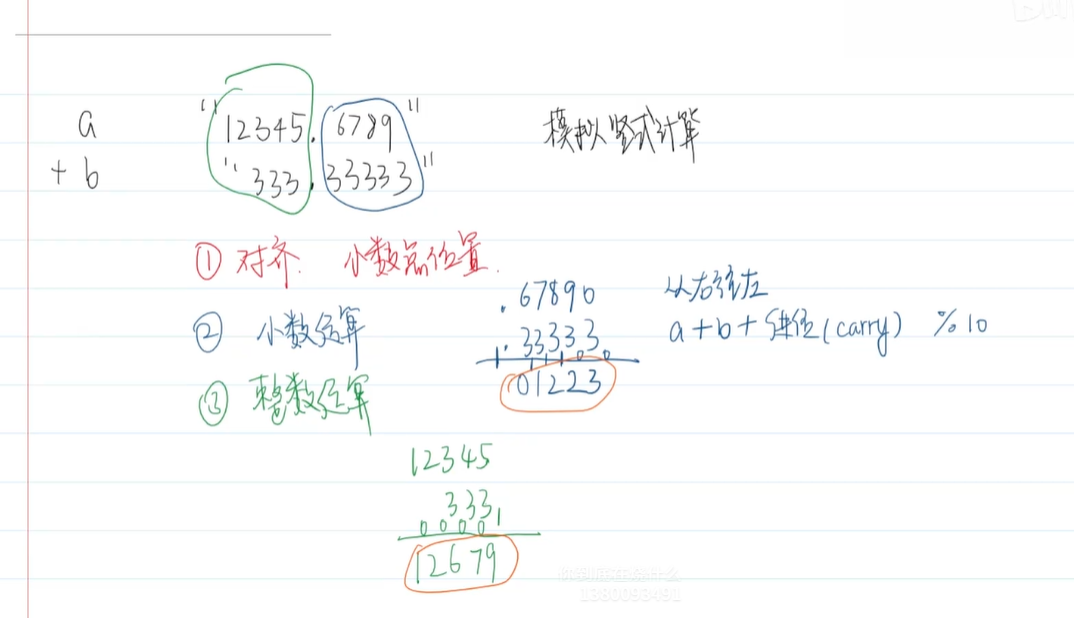 a "12345.6789"
+ b "333.33333"
模拟竖式计算
① 对齐. 小数点位置.
② 小数运算
③ 整数运算
.67890
.33333
1 1 1 1 0 0
01223
从右往左
a+b+进位(carry) %10
12345
333
0 0 0 0 1
12679
你到底在烧什么
1380093491